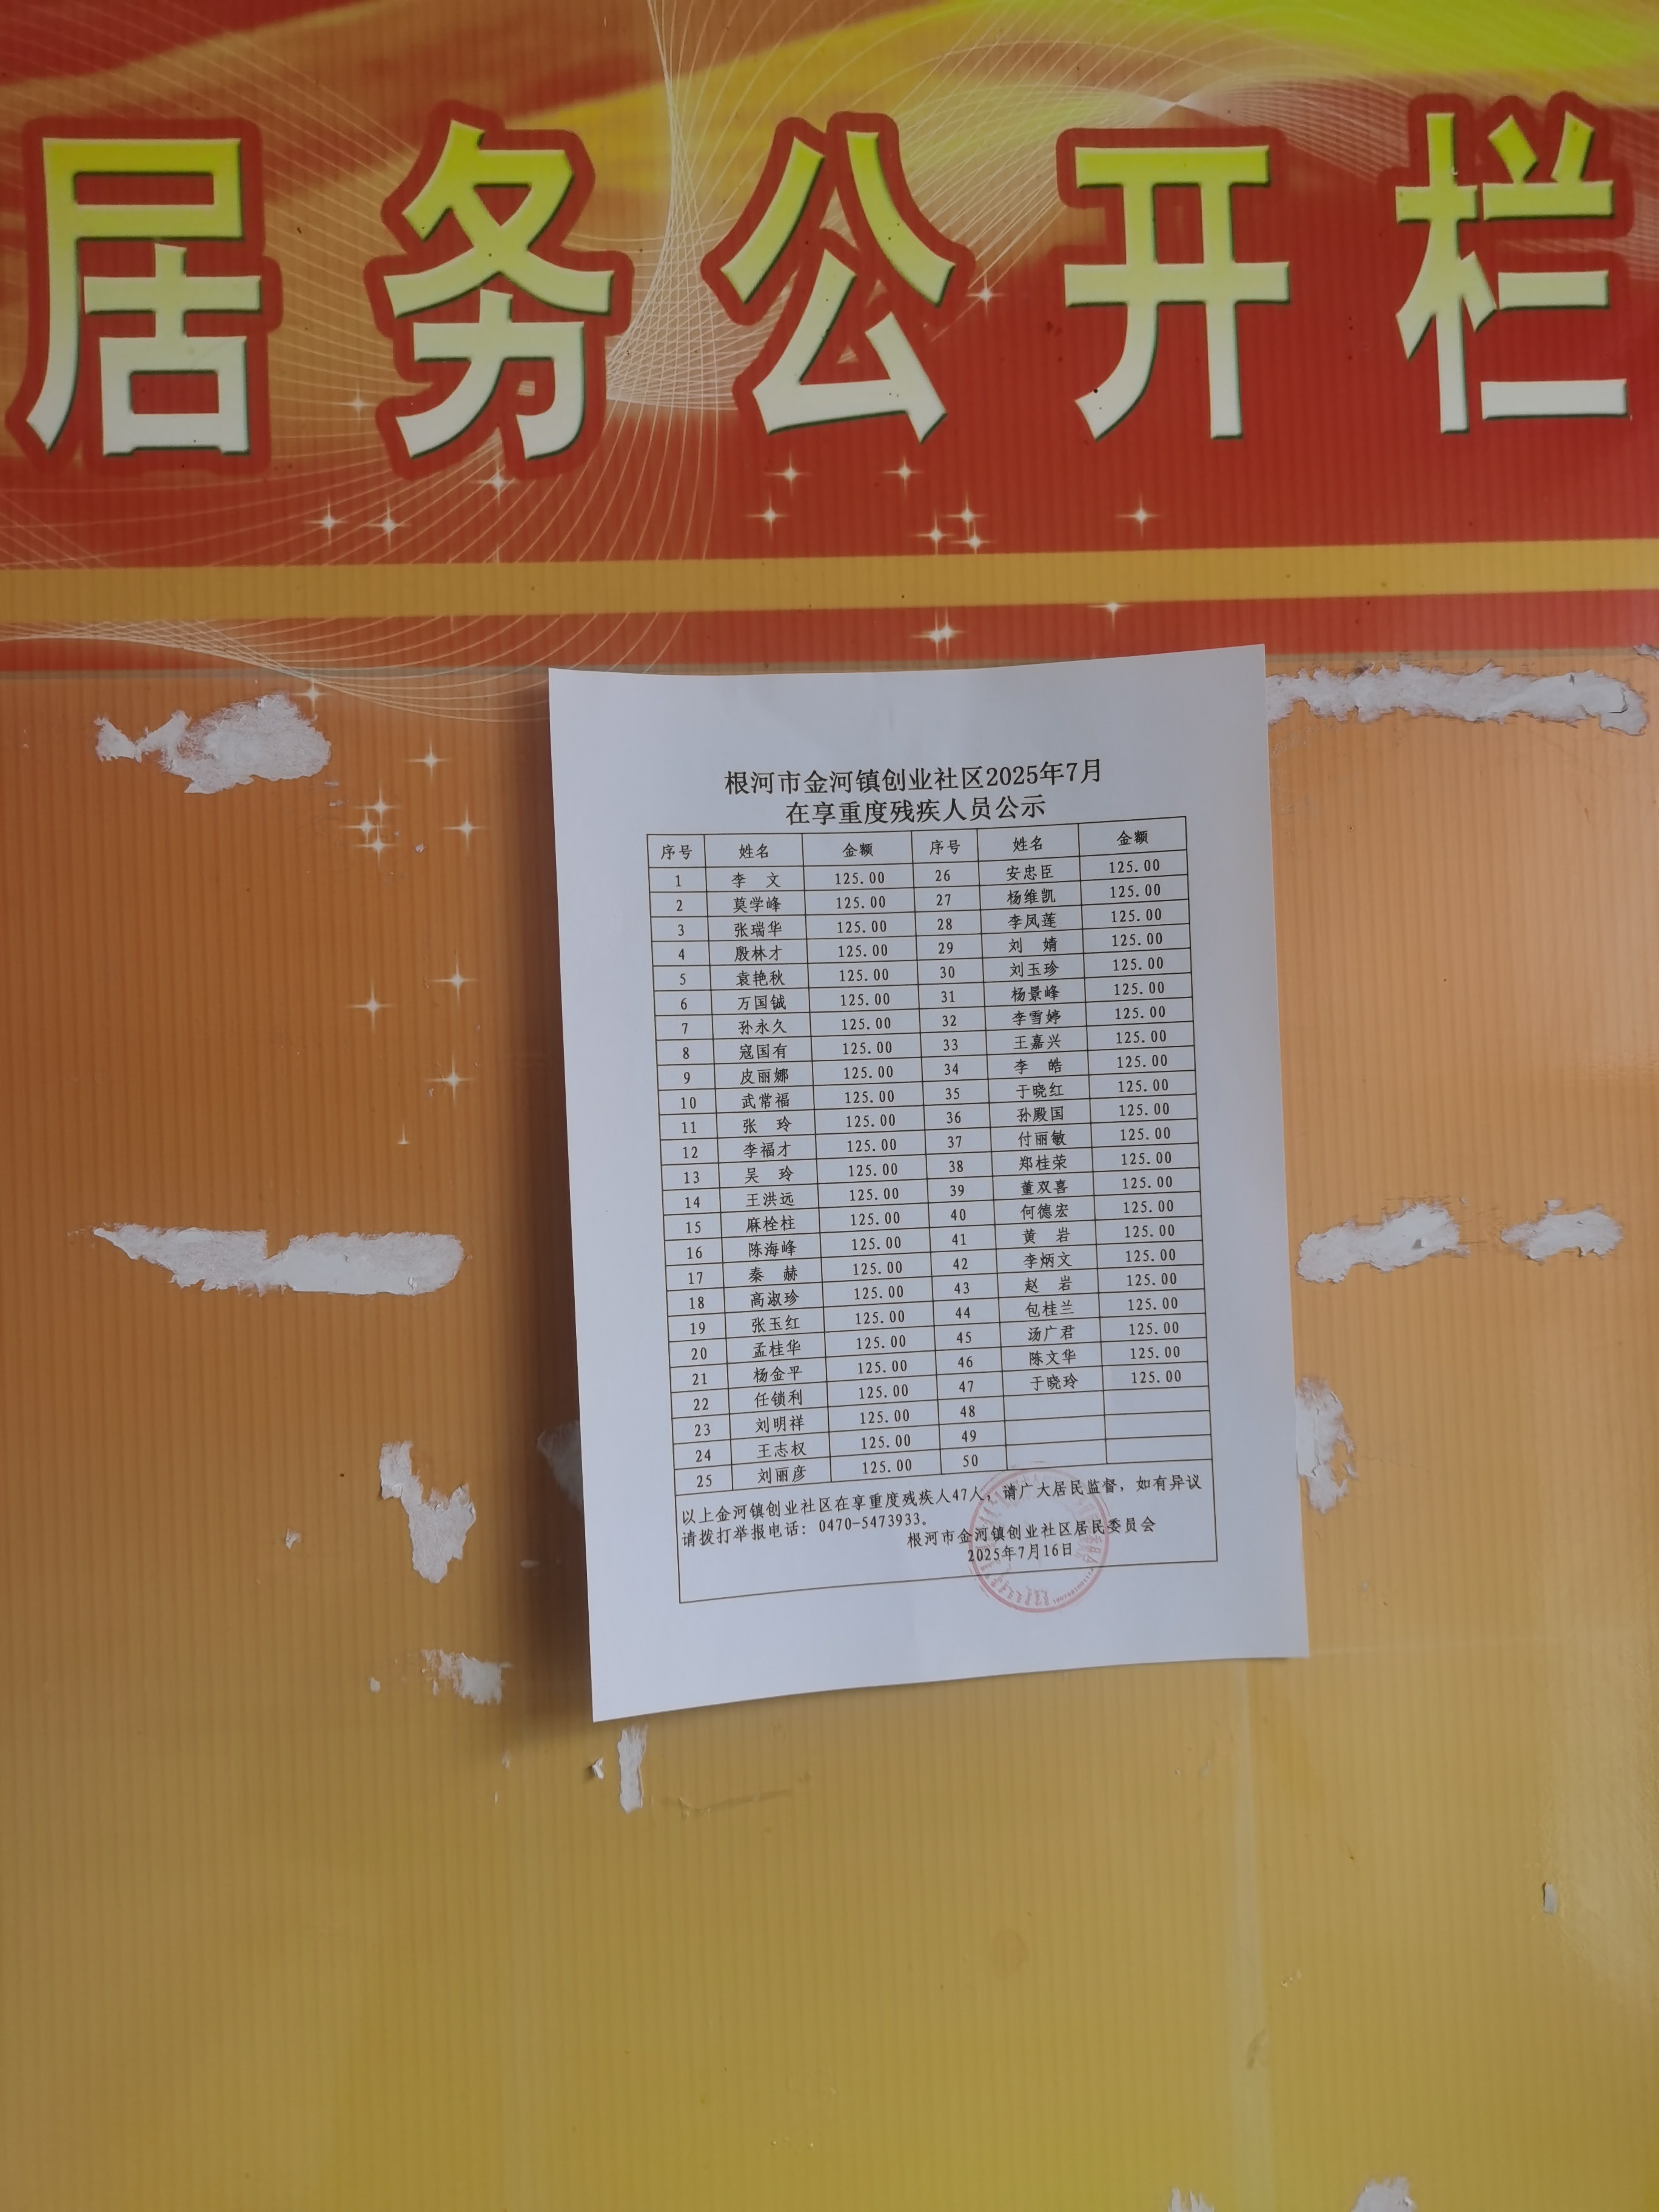 居务公开栏
根河市金河镇创业社区2025年7月
在享重度残疾人员公示
序号 姓名 金额 序号 姓名 金额
1 李 文 125.00 26 安忠臣 125.00
2 莫学峰 125.00 27 杨维凯 125.00
3 张瑞华 125.00 28 李凤莲 125.00
4 殷林才 125.00 29 刘 婧 125.00
5 袁艳秋 125.00 30 刘玉珍 125.00
6 万国铖 125.00 31 杨景峰 125.00
7 孙永久 125.00 32 李雪婷 125.00
8 寇国有 125.00 33 王嘉兴 125.00
9 皮丽娜 125.00 34 李 皓 125.00
10 武常福 125.00 35 于晓红 125.00
11 张 玲 125.00 36 孙殿国 125.00
12 李福才 125.00 37 付丽敏 125.00
13 吴 玲 125.00 38 郑桂荣 125.00
14 王洪远 125.00 39 董双喜 125.00
15 麻栓柱 125.00 40 何德宏 125.00
16 陈海峰 125.00 41 黄 岩 125.00
17 秦 赫 125.00 42 李炳文 125.00
18 高淑珍 125.00 43 赵 岩 125.00
19 张玉红 125.00 44 包桂兰 125.00
20 孟桂华 125.00 45 汤广君 125.00
21 杨金平 125.00 46 陈文华 125.00
22 任锁利 125.00 47 于晓玲 125.00
23 刘明祥 125.00 48
24 王志权 125.00 49
25 刘丽彦 125.00 50
以上金河镇创业社区在享重度残疾人47人，请广大居民监督，如有异议
请拨打举报电话：0470-5473933。
根河市金河镇创业社区居民委员会
2025年7月16日